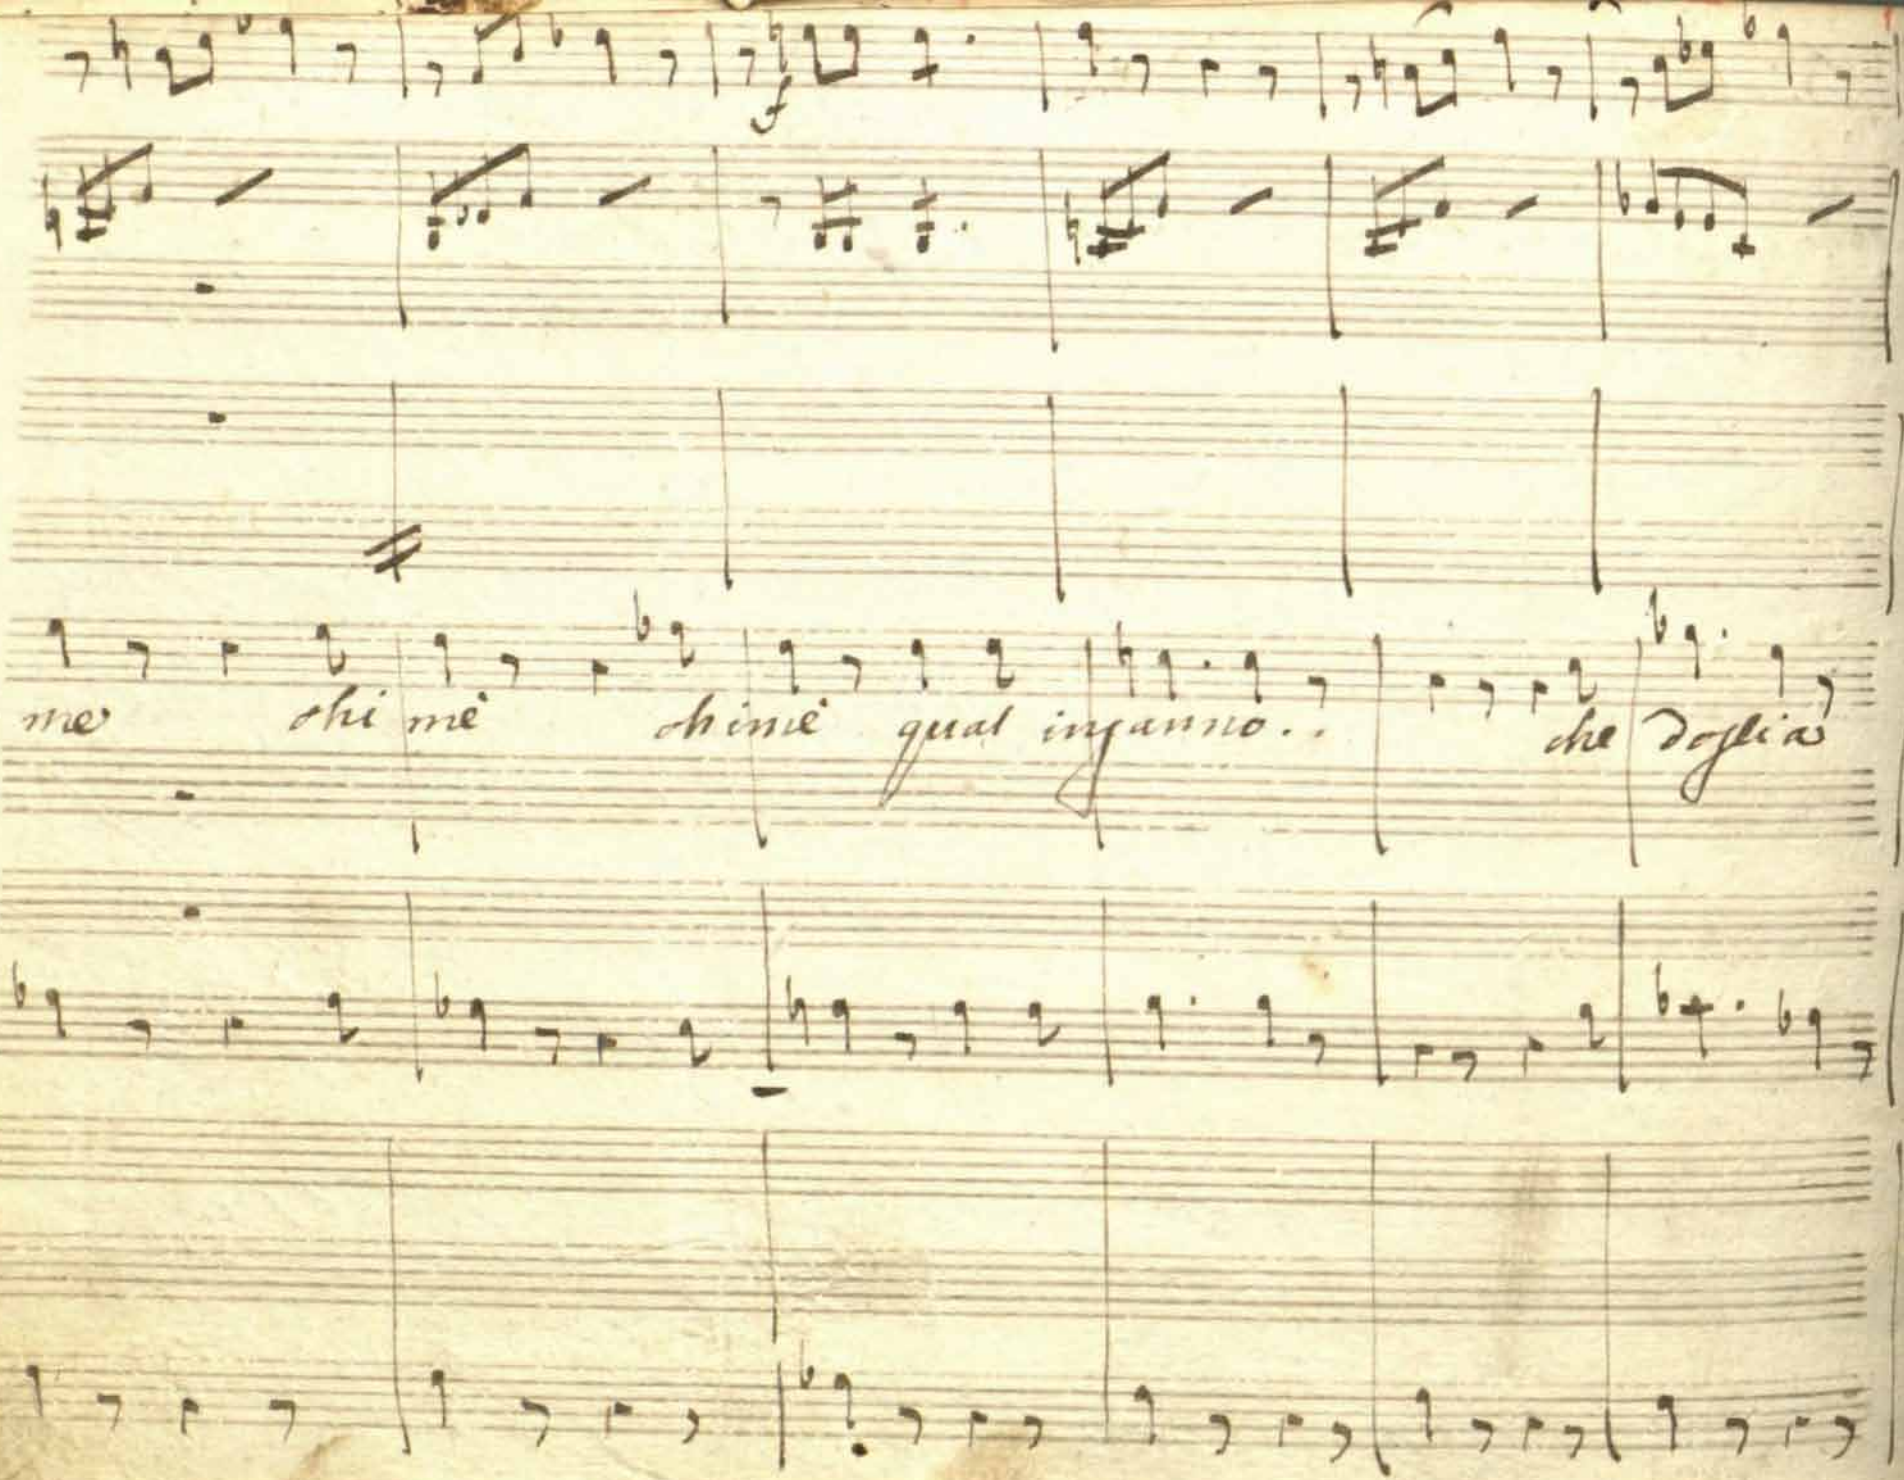 f
me ohi mè ohimè qual inganno.. che doglia